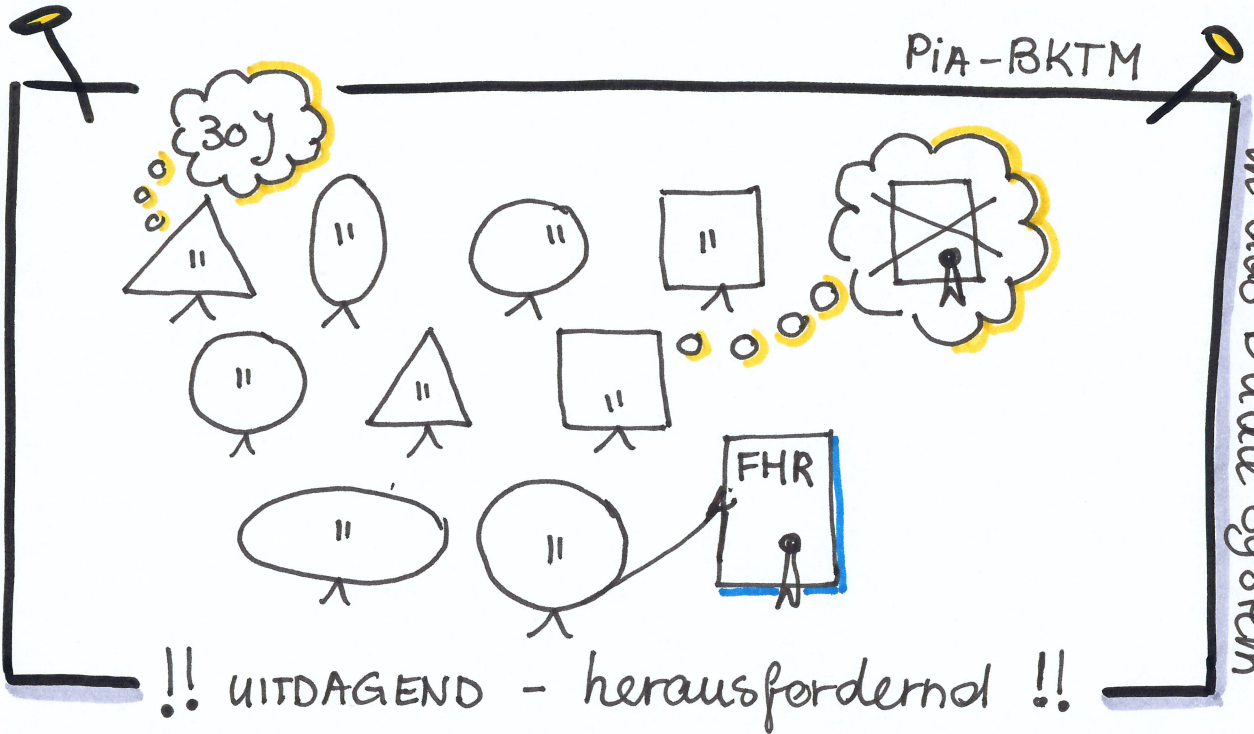 PiA-BKTM
30 y
FHR
!! UITDAGEND - herausfordernd !!